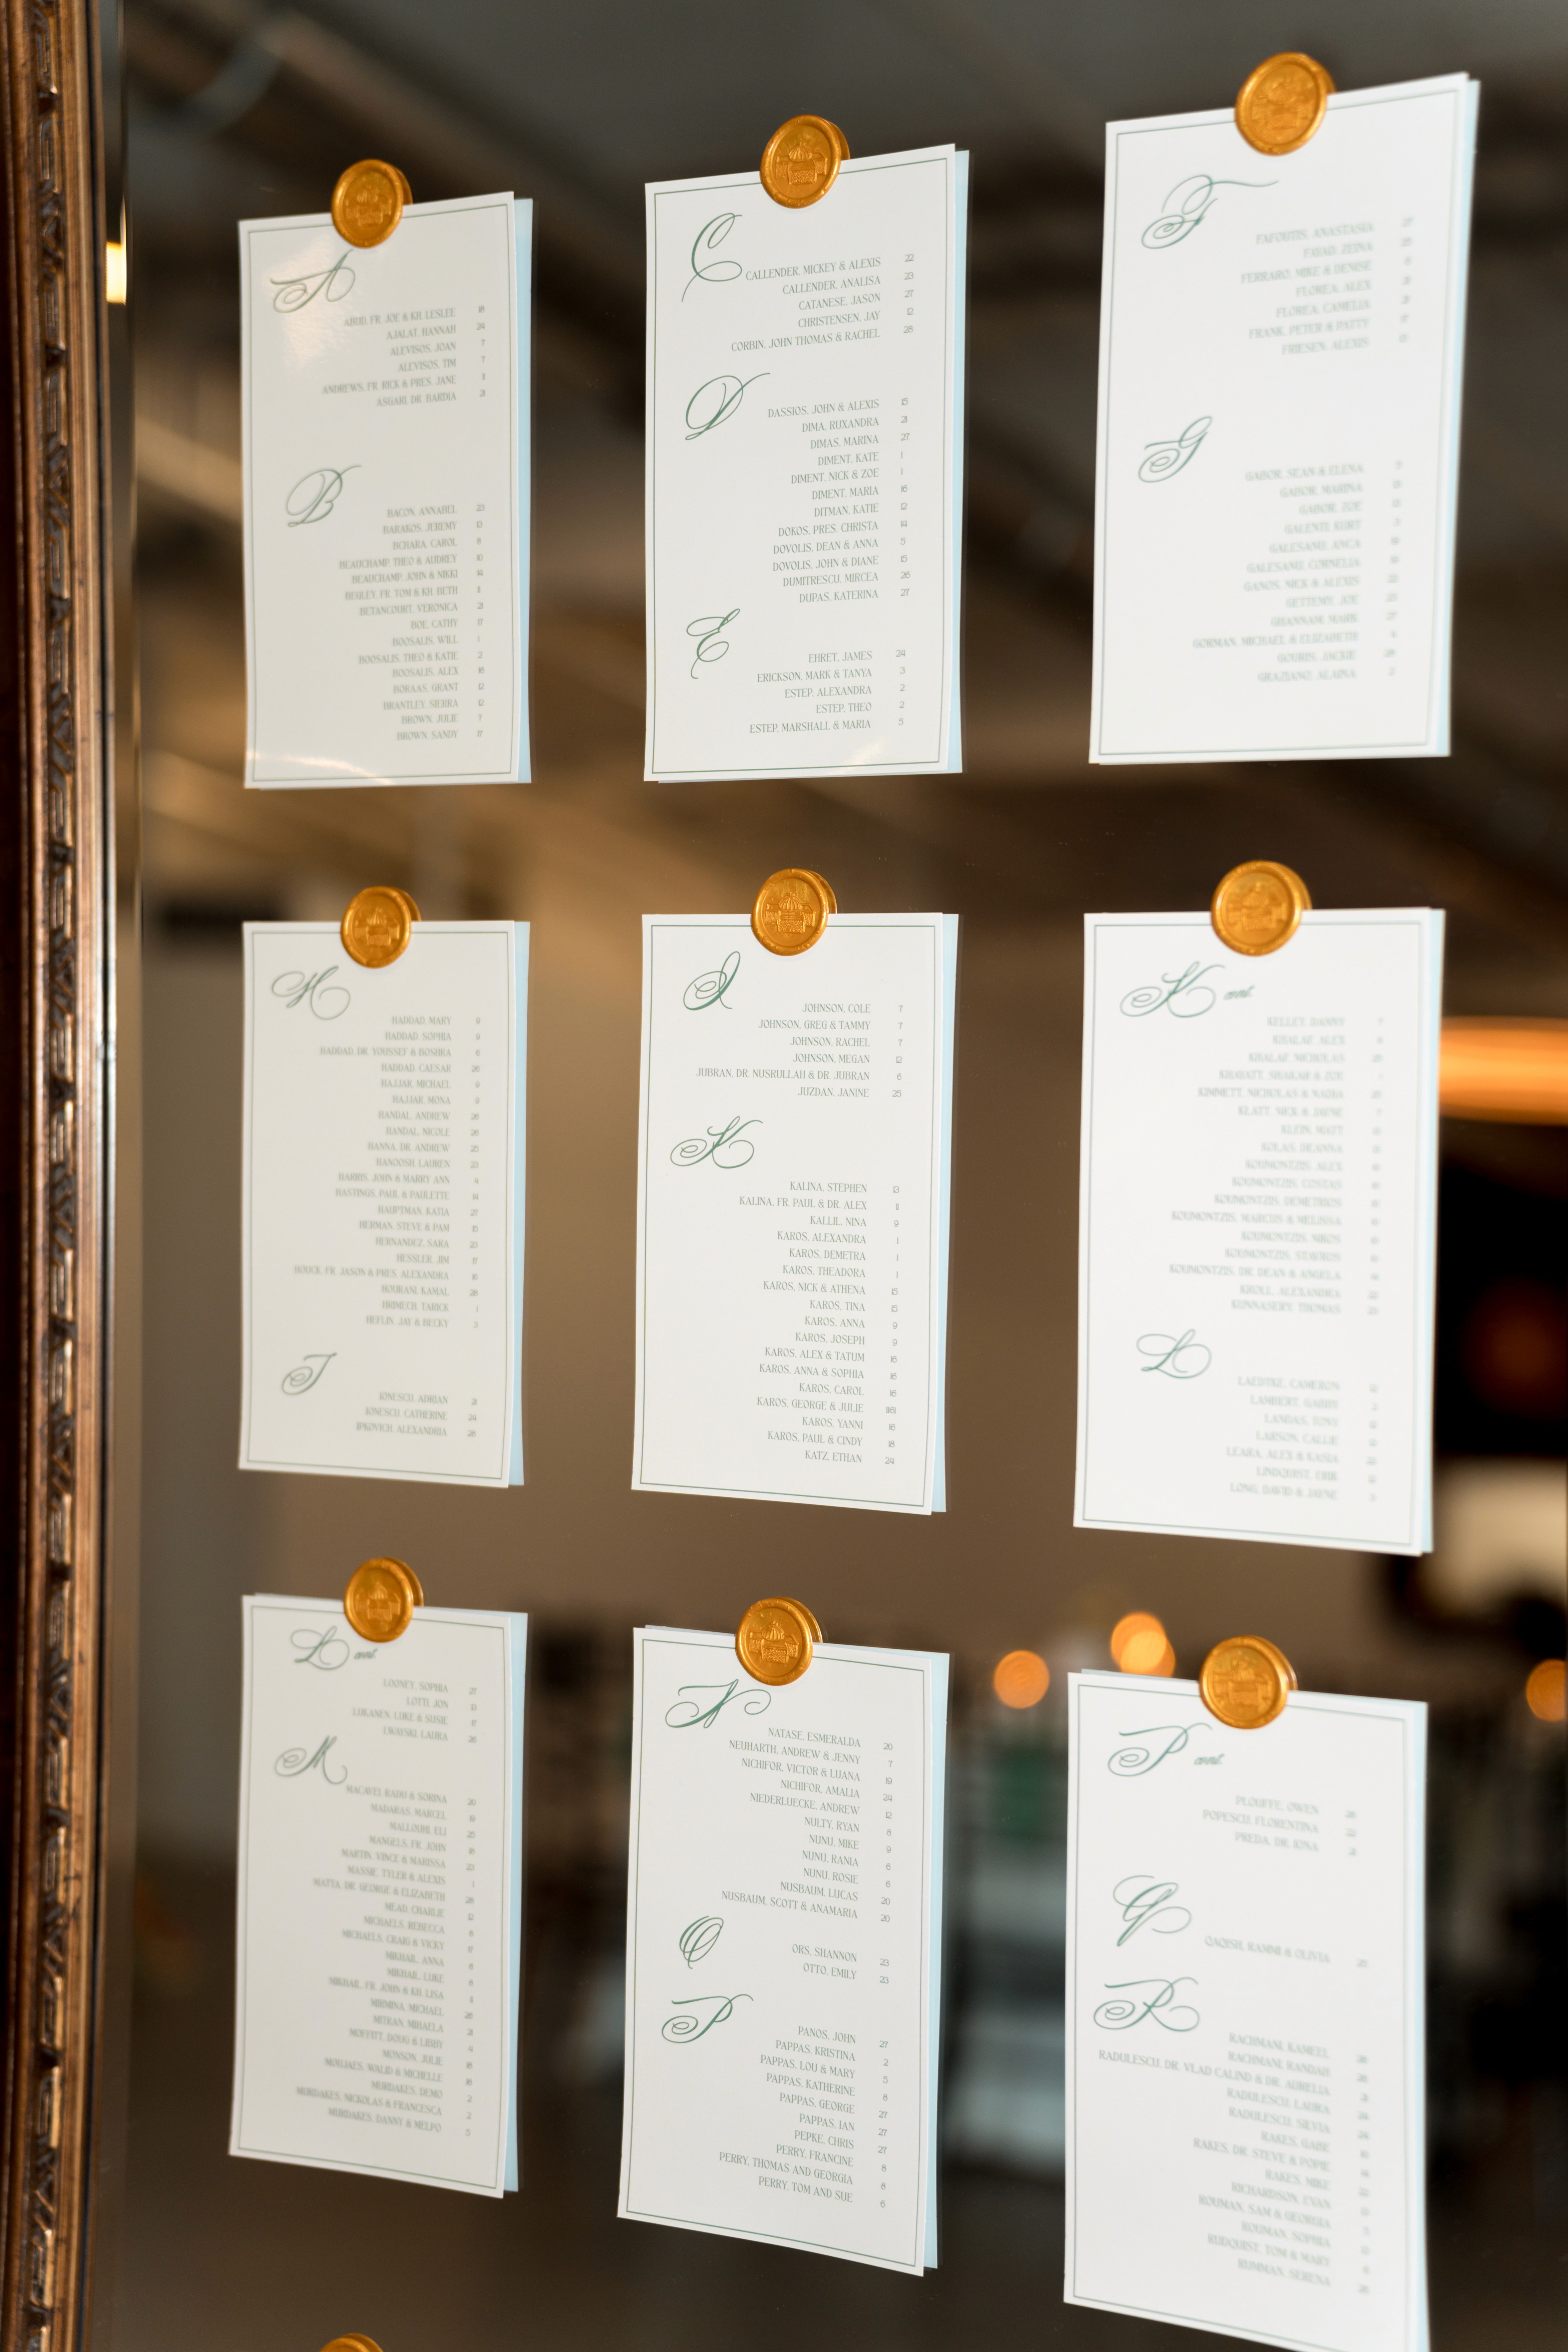 A
ABUD, FR. JOE & KH. LESLEE 18
AJALAT, HANNAH 24
ALEVISOS, JOAN 7
ALEVISOS, TIM 7
ANDREWS, FR. RICK & PRES. JANE 11
ASGARI, DR. BARDIA 21
B
BACON, ANNABEL 23
BARAKOS, JEREMY 13
BCHARA, CAROL 8
BEAUCHAMP, THEO & AUDREY 10
BEAUCHAMP, JOHN & NIKKI 14
BEGLEY, FR. TOM & KH. BETH 11
BETANCOURT, VERONICA 21
BOE, CATHY 17
BOOSALIS, WILL 1
BOOSALIS, THEO & KATIE 2
BOOSALIS, ALEX 16
BORAAS, GRANT 12
BRANTLEY, SIERRA 12
BROWN, JULIE 7
BROWN, SANDY 17
C
CALLENDER, MICKEY & ALEXIS 22
CALLENDER, ANALISA 23
CATANESE, JASON 27
CHRISTENSEN, JAY 12
CORBIN, JOHN THOMAS & RACHEL 28
D
DASSIOS, JOHN & ALEXIS 15
DIMA, RUXANDRA 21
DIMAS, MARINA 27
DIMENT, KATE 1
DIMENT, NICK & ZOE 1
DIMENT, MARIA 16
DITMAN, KATIE 12
DOKOS, PRES. CHRISTA 14
DOVOLIS, DEAN & ANNA 5
DOVOLIS, JOHN & DIANE 15
DUMITRESCU, MIRCEA 26
DUPAS, KATERINA 27
E
EHRET, JAMES 24
ERICKSON, MARK & TANYA 3
ESTEP, ALEXANDRA 2
ESTEP, THEO 2
ESTEP, MARSHALL & MARIA 5
F
FAFOUTIS, ANASTASIA 27
FAYAD, ZEINA
FERRARO, MIKE & DENISE
FLOREA, ALEX
FLOREA, CAMELIA
FRANK, PETER & PATTY
FRIESEN, ALEXIS
G
GABOR, SEAN & ELENA
GABOR, MARINA
GABOR, ZOE
GALENTI, KURT
GALESANU, ANCA
GALESANU, CORNELIA
GANOS, NICK & ALEXIS
GETTEMY, JOE
GHANNAM, MARK
GORMAN, MICHAEL & ELIZABETH
GOURIS, JACKIE
GRAZIANO, ALAINA
H
HADDAD, MARY 9
HADDAD, SOPHIA 9
HADDAD, DR. YOUSSEF & BOSHRA 6
HADDAD, CAESAR 26
HAJJAR, MICHAEL 9
HAJJAR, MONA 9
HANDAL, ANDREW 26
HANDAL, NICOLE 26
HANNA, DR. ANDREW 25
HANOOSH, LAUREN 23
HARRIS, JOHN & MARRY ANN 4
HASTINGS, PAUL & PAULETTE 14
HAUPTMAN, KATIA 27
HERMAN, STEVE & PAM 15
HERNANDEZ, SARA 20
HESSLER, JIM 17
HOUCK, FR. JASON & PRES. ALEXANDRA 16
HOURANI, KAMAL 28
HRIMECH, TARICK 1
HEFLIN, JAY & BECKY 3
I
IONESCU, ADRIAN 21
IONESCU, CATHERINE 24
IPKOVICH, ALEXANDRIA 28
J
JOHNSON, COLE 7
JOHNSON, GREG & TAMMY 7
JOHNSON, RACHEL 7
JOHNSON, MEGAN 12
JUBRAN, DR. NUSRULLAH & DR. JUBRAN 6
JUZDAN, JANINE 25
K
KALINA, STEPHEN 13
KALINA, FR. PAUL & DR. ALEX 11
KALLIL, NINA 9
KAROS, ALEXANDRA 1
KAROS, DEMETRA 1
KAROS, THEADORA 1
KAROS, NICK & ATHENA 15
KAROS, TINA 15
KAROS, ANNA 9
KAROS, JOSEPH 9
KAROS, ALEX & TATUM 16
KAROS, ANNA & SOPHIA 16
KAROS, CAROL 16
KAROS, GEORGE & JULIE
KAROS, YANNI 16
KAROS, PAUL & CINDY 18
KATZ, ETHAN 24
K cont.
KELLEY, DANNY
KHALAF, ALEX
KHALAF, NICHOLAS
KHAYATT, SHARAH & ZOE
KIMMETT, NICHOLAS & NADIA
KLATT, NICK & JAYNE
KLEIN, MATT
KOLAS, DEANNA
KOUMONTZIS, ALEX
KOUMONTZIS, COSTAS
KOUMONTZIS, DEMETRIOS
KOUMONTZIS, MARCUS & MELISSA
KOUMONTZIS, NIKOS
KOUMONTZIS, STAVROS
KOUMONTZIS, DR. DEAN & ANGELA
KROLL, ALEXANDRA
KUNNASERY THOMAS
L
LAEDTKE, CAMERON
LAMBERT, GABBY
LANDAS, TONY
LARSON, CALLIE
LEARA, ALEX & KASIA
LINDQUIST, ERIK
LONG, DAVID & JAYNE
L cont.
LOONEY, SOPHIA 27
LOTTI, JON 13
LUKANEN, LUKE & SUSIE 17
LWAYSKI, LAURA 26
M
MACAVEI, RADU & SORINA 20
MADARAS, MARCEL 19
MALLOUHI, ELI 25
MANGELS, FR. JOHN 18
MARTIN, VINCE & MARISSA 23
MASSIE, TYLER & ALEXIS 1
MATTA, DR. GEORGE & ELIZABETH 28
MEAD, CHARLIE 12
MICHAELS, REBECCA 8
MICHAELS, CRAIG & VICKY 17
MIKHAIL, ANNA 6
MIKHAIL, LUKE 6
MIKHAIL, FR. JOHN & KH. LISA 11
MIRMINA, MICHAEL 26
MITRAN, MIHAELA 21
MOFFITT, DOUG & LIBBY 4
MONSON, JULIE 18
MOUJAES, WALID & MICHELLE 18
MURDAKES, DEMO 2
MURDAKES, NICKOLAS & FRANCESCA 2
MURDAKES, DANNY & MELPO 5
N
NATASE, ESMERALDA 20
NEUHARTH, ANDREW & JENNY 7
NICHIFOR, VICTOR & LUANA 19
NICHIFOR, AMALIA 24
NIEDERLUECKE, ANDREW 12
NULTY, RYAN 8
NUNU, MIKE 9
NUNU, RANIA 6
NUNU, ROSIE 6
NUSBAUM, LUCAS 20
NUSBAUM, SCOTT & ANAMARIA 20
O
ORS, SHANNON 23
OTTO, EMILY 23
P
PANOS, JOHN 27
PAPPAS, KRISTINA 2
PAPPAS, LOU & MARY 5
PAPPAS, KATHERINE 8
PAPPAS, GEORGE 27
PAPPAS, IAN 27
PEPKE, CHRIS 27
PERRY, FRANCINE 8
PERRY, THOMAS AND GEORGIA 8
PERRY, TOM AND SUE 6
P cont.
PLOUFFE, OWEN
POPESCU, FLORENTINA
PREDA, DR. IONA
Q
QAQISH, RANMI & OLIVIA
R
RACHMANI, KAMEEL
RACHMANI, RANDAH
RADULESCU, DR. VLAD CALIND & DR. AURELIA
RADULESCU, LAURA
RADULESCU, SILVIA
RAKES, GABE
RAKES, DR. STEVE & POPIE
RAKES, MIKE
RICHARDSON, EVAN
ROUMAN, SAM & GEORGIA
ROUMAN, SOPHIA
RUDQUIST, TOM & MARY
RUMMAN, SERENA